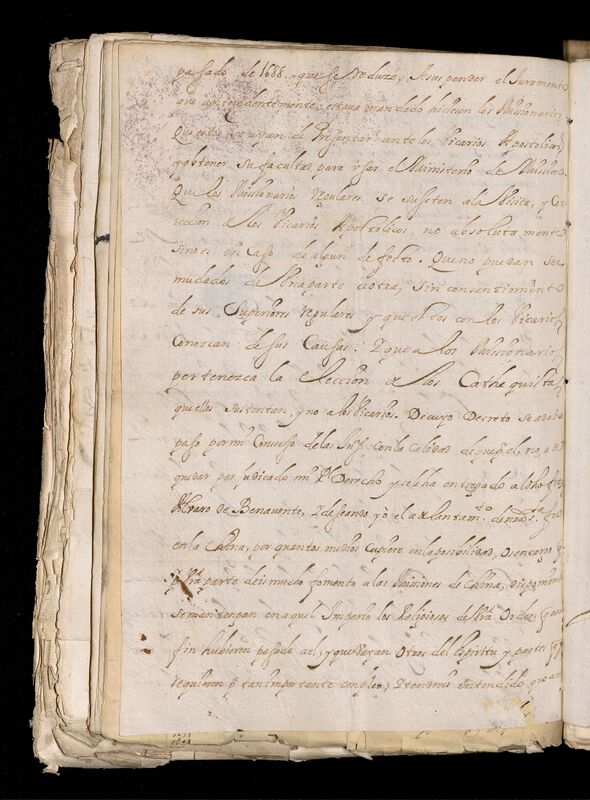 pasado de 1688. que se reduze, A suspender el Juramento
que antecedentemente, estava mandado hiciesen los Missionarios
Que estos se ayan de Presentar ante los Vicarios Apostolicos
y obtener su facultad, para usar el Ministerio de Mission.
Que los Missionarios regulares se sujeten a la Visita, y Cor
reccion de los Vicarios Apostolicos, no absolutamente
sino es en Caso de algun defecto. Que no puedan ser
mudados de Una parte a otra, sin consentimiento
de sus Superiores regulares y que estos con los Vicarios
Conozcan de sus Causas. Y que a los Missionarios
pertenezca la eleccion de los Cathequistas
que ellos sustentan, y no a los Vicarios. De cuyo Decreto se a dado
paso por mi Consejo de las Inds. con la Calidad de que por el, no, a de
quedar perjudicado mi Rl Derecho y se le ha entregado al dho fray
Alvaro de Benavente, Y deseando yo el adelantamto. de nra. sta. fee
en la China, por quantos medios Cupiere en la posibilidad, Os encargo
por Vra parte deis mucho fomento a las Missiones de China, disponiendo
se mantengan en aquel Imperio los Religiosos de Vra Orden,
fin hubieren pasado a el, y que vayan Otros del Espiritu y partes
requieren para tan importante empleo, Y tendreis entendido que